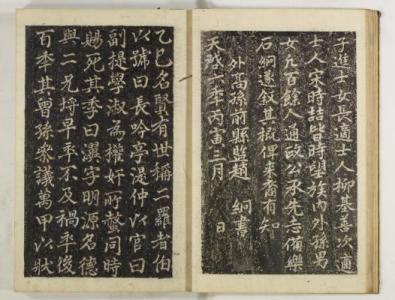 子進士女長適士人柳基善次適
士人宋時喆皆時望族內外孫男
女九百餘人通政公承先志備樂
石絅遂敘其槩俾來裔有知
外高孫前縣監趙 絅書
天啓六年丙寅三月 日
乙巳名賢有世稱二羅者伯
以號曰長吟亭湜仲以官曰
副提學淑為權奸所螫同時
賜死其季曰瀷字明源名德
與二兄埒早卒不及禍卒後
百季其曾孫參議萬甲以狀